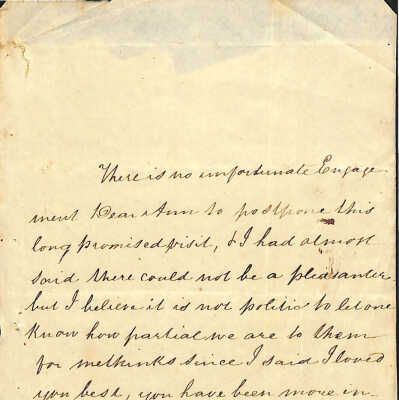 There is no unfortunate Engage
ment Dear Ann to postpone this
long promised visit, & I had almost
said there could not be a pleasanter
but I believe it is not politic to let one
Know how partial we are to them
for methinks since I said I loved
you best, you have been more in-